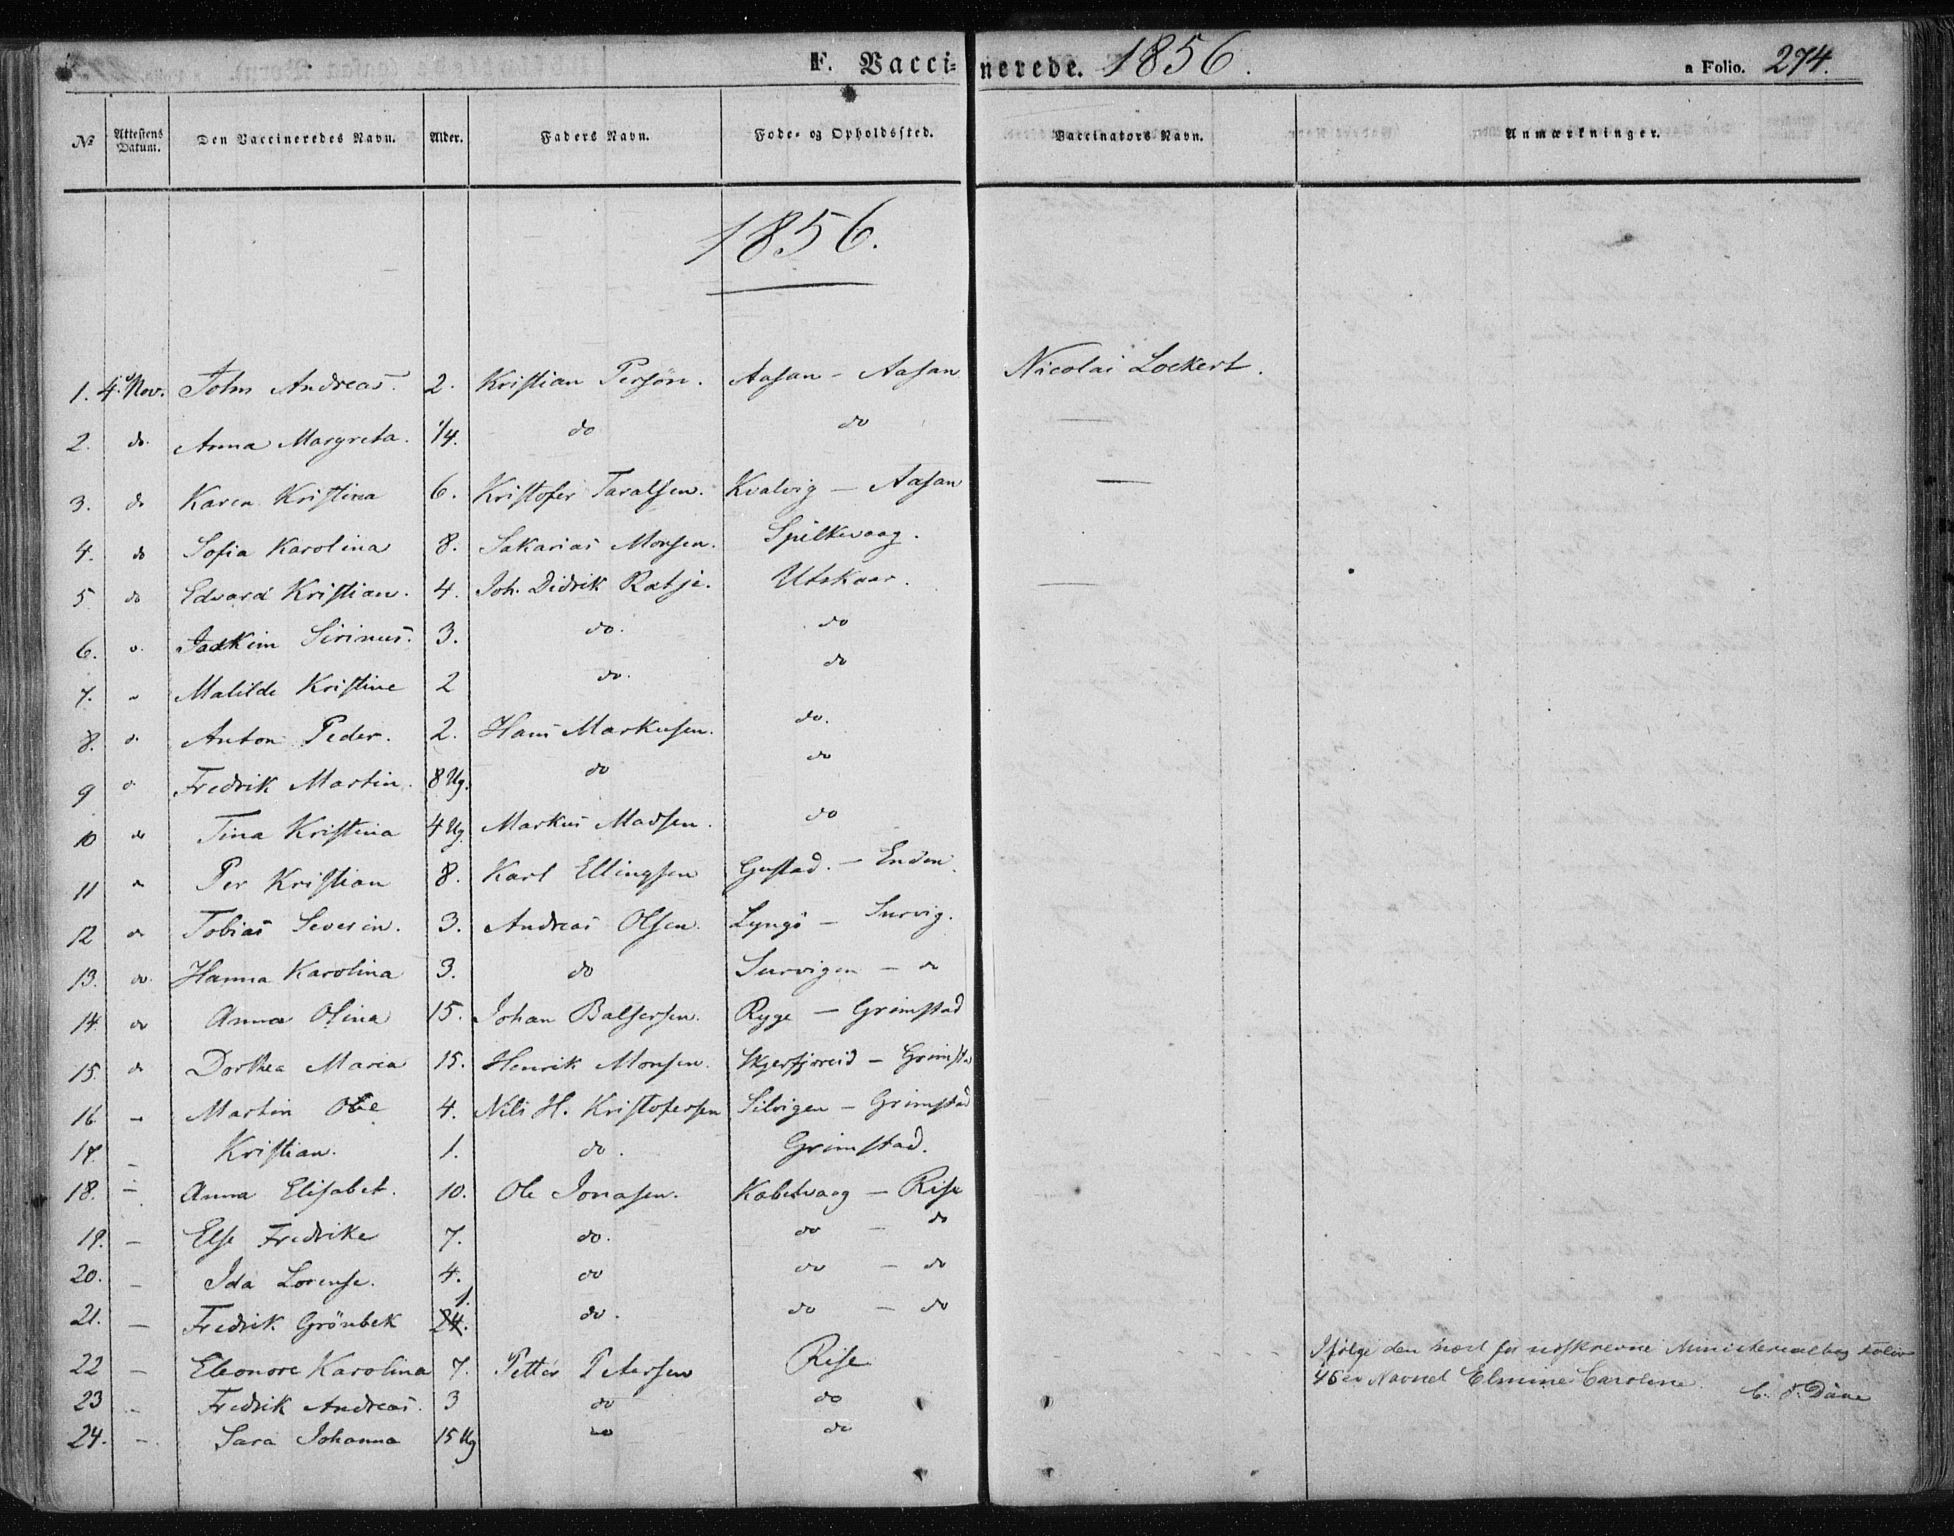 F. Vaccinerede. 1856. a Folio. 274.
№ Attestens Datum. Den Vaccineredes Navn. Alder. Faders Navn. Føde- og Opholdssted. Vaccinators Navn. Anmærkninger.
1856.
1. 4 Nov. John Andreas. 2. Kristian Persön. Aasan - Aasan Nicolai Lockert.
2. do. Anna Margreta. 1/4. do do —
3. do Karen Kristina 6. Kristofer Taralsen. Kvalvig - Aasan —
4. do Sofia Karolina 8. Sakarias Monsen. Spilkevaag.
5. do Edvard Kristian. 4. Joh. Didrik Ratje. Utskaar. —
6. o. Joakim Sirinus. 3. do. do
7. " Matilde Kristine 2 do. do
8. o. Anton Peder. 2. Hans Markusen. do.
9 o Fredrik Martin. 8 Ug. do do
10 do Tina Kristina 4 Ug Markus Madsen. do
11 " Per Kristian 8. Karl Ellingsen Gustad. - Enden
12 do Tobias Severin. 3. Andreas Olsen. Lyngö - Survig.
13. do. Hanna Karolina 3. do Survigen - do
14. do Anna Olina 15. Johan Balsersen. Ryge - Grimstad
15. do Dorthea Maria 15. Henrik Monsen. Skjerfjoreid - Grimstad
16. - Martin Ole 4. Nils H. Kristofersen Silvigen - Grimstad
17. - Kristian. 1. do. Grimstad.
18. - Anna Elisabet. 10. Ole Jonasen. Kabelvaag - Rise
19. - Else Fredrike 7. do. do - do
20. - Ida Lorense. 4. do do - do
21. - Fredrik Grönbek 24. 1. do. do - do
22 - Eleonore Karolina 7. Petter Petersen Rise Ifølge den næst før udskrevne Ministerialbog folio
46 er Navnet Elmine Caroline. C. d. Dave
23 - Fredrik Andreas. 3 do do
24. - Sara Johanna 15 Ug do do